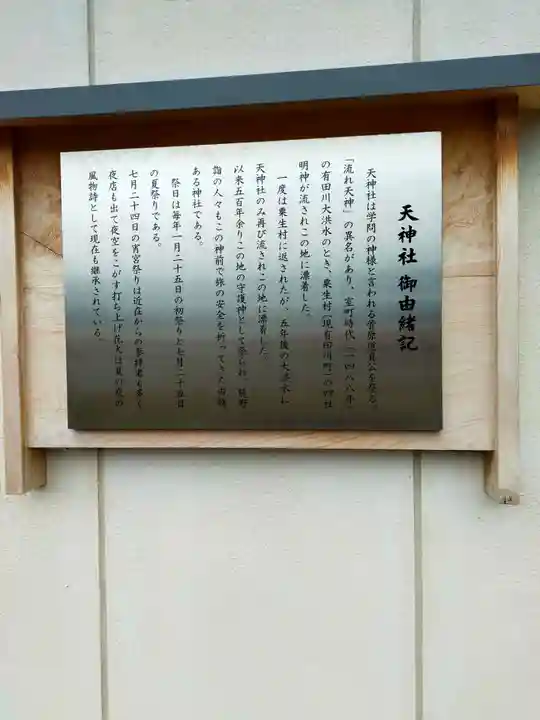 天神社御由緒記
天神社は学問の神様と言われる菅原道真公を祭る。
「流れ天神」の異名があり、室町時代(一四八八年)
の有田川大洪水のとき、粟生村(現有田川町)の四社
明神が流されこの地に漂着した。
一度は粟生村に返されたが、五年後の大洪水に
天神社のみ再び流されこの地に漂着した。
以来五百年余りこの地の守護神として祭られ、熊野
詣の人々もこの神前で旅の安全を祈ってきた由緒
ある神社である。
祭日は毎年一月二十五日の初祭りと七月二十五日
の夏祭りである。
七月二十四日の宵宮祭りは近在からの参拝者も多く
夜店も出て夜空をこがす打ち上げ花火は夏の夜の
風物詩として現在も継承されている。